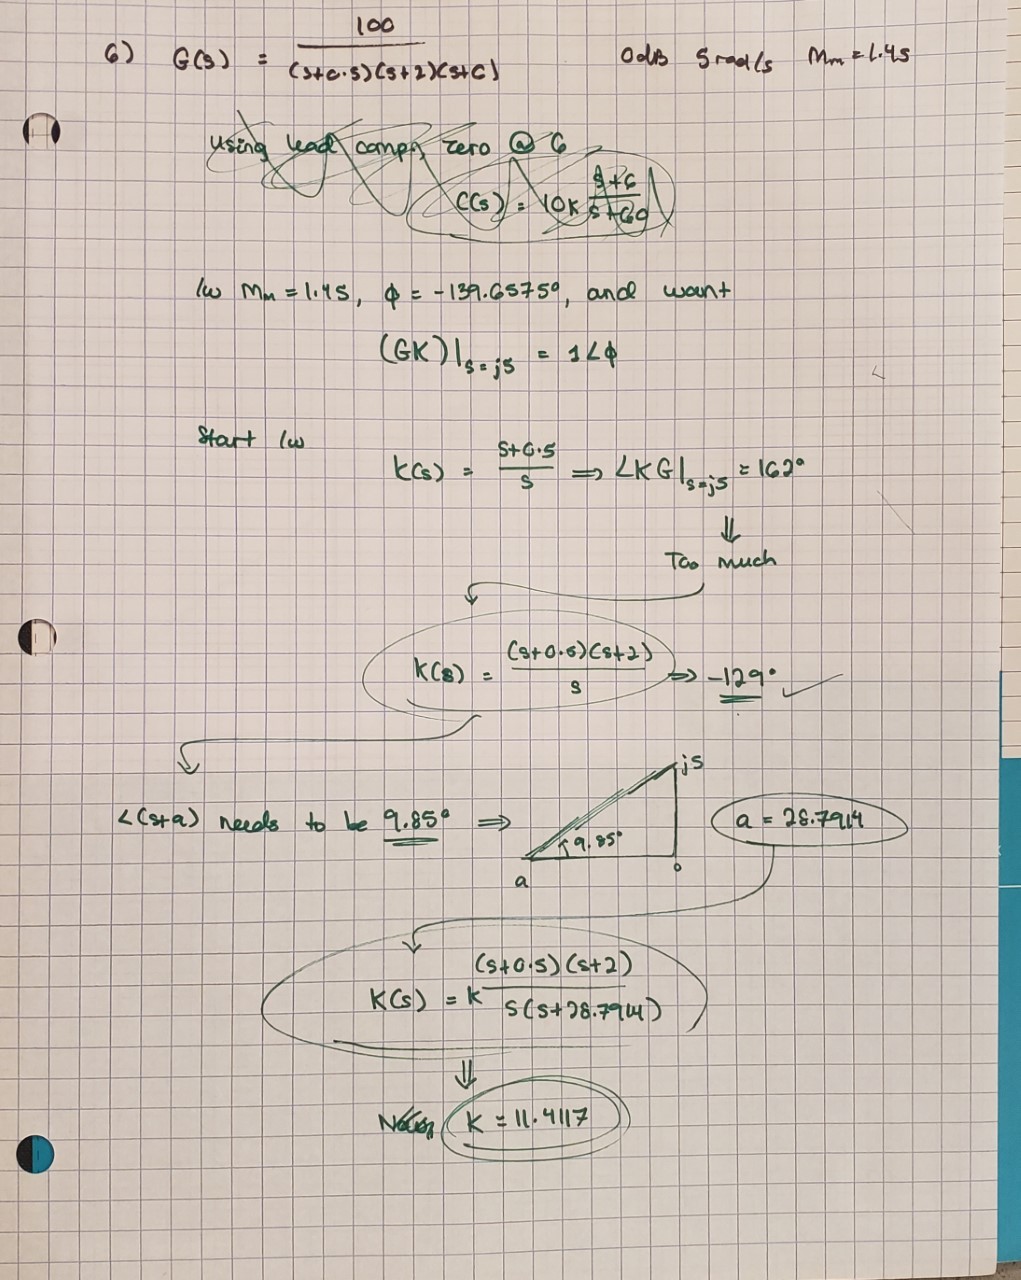 6) G(s) = 100 / (s+0.5)(s+2)(s+6) 0dB 5 rad/s Mm = 1.45
using lead comp, zero @ 6
C(s) = 10K s+6 / s+60
/w Mm = 1.45, φ = -139.6575°, and want
(GK)|s=j5 = 1∠φ
Start /w
K(s) = s+0.5 / s ⟹ ∠KG|s=j5 = 162°
⇓
Too much
K(s) = (s+0.5)(s+2) / s ⟹ -129° ✓
∠(s+a) needs to be 9.85° ⟹
j5
9.85°
a
0
a = 28.7914
K(s) = K (s+0.5)(s+2) / s(s+28.7914)
⇓
K = 11.4117